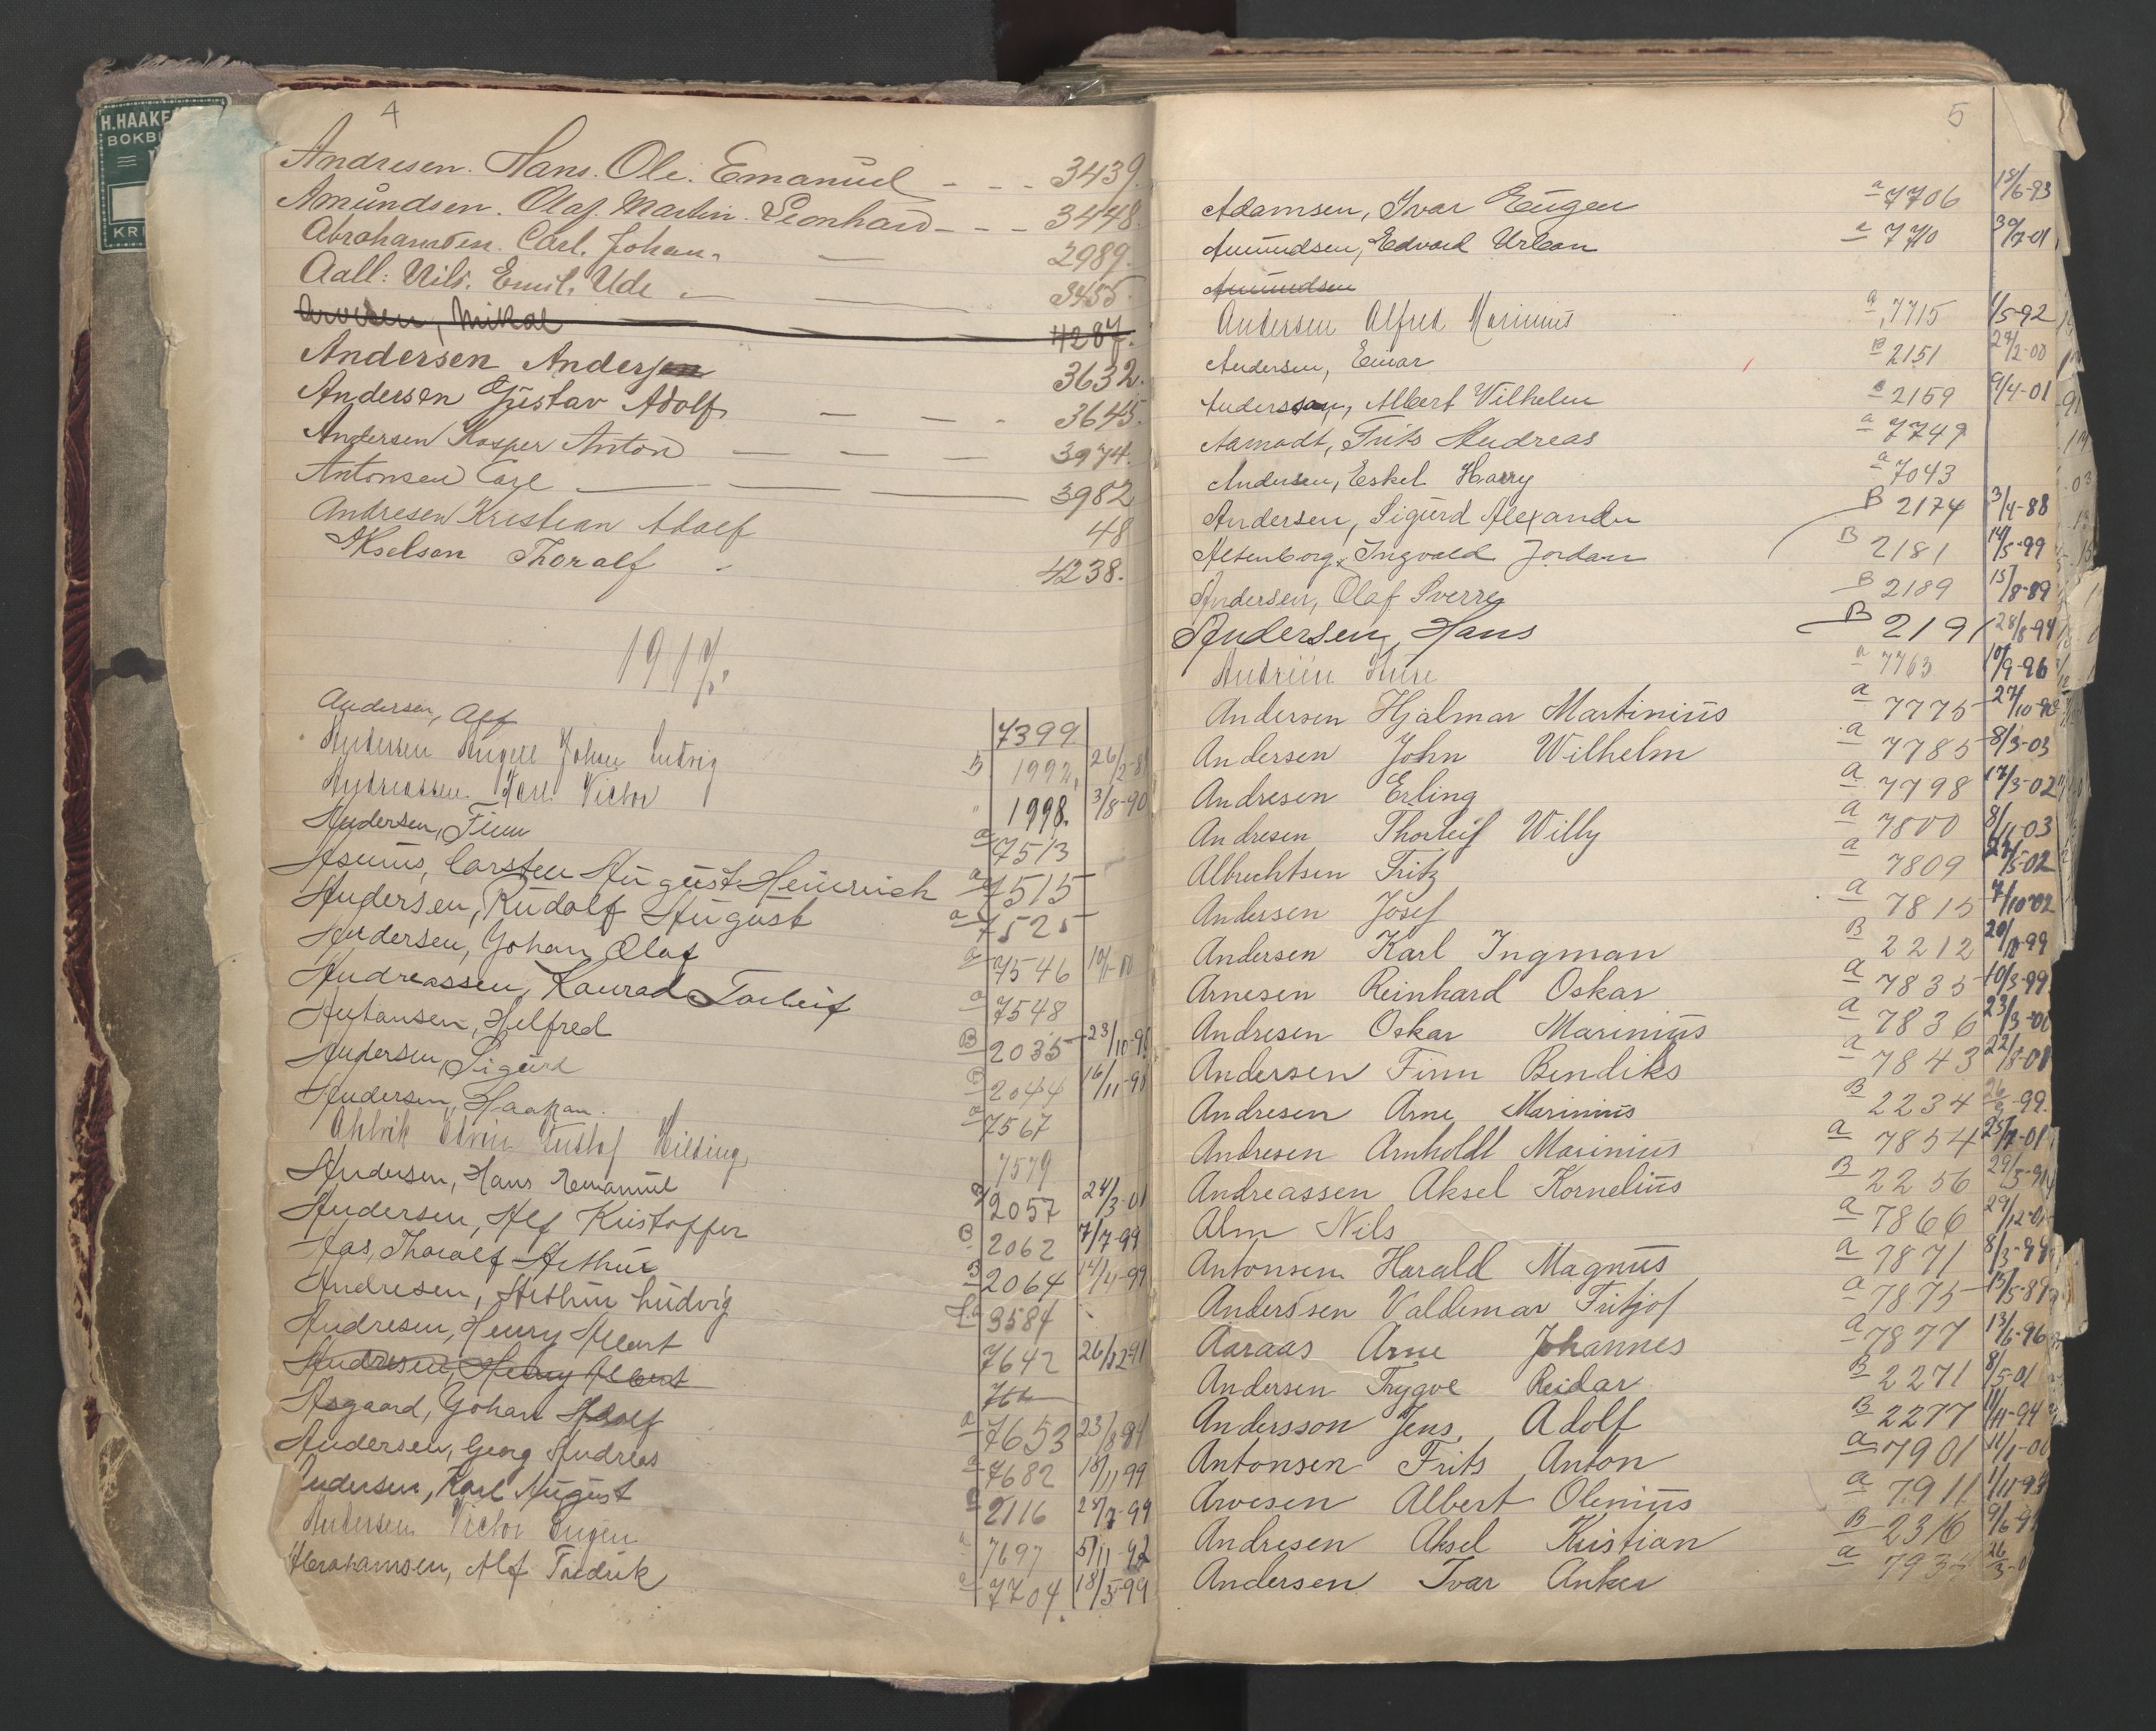 H.HAAKE
BOKBI
KRI
4
Andresen. Hans. Ole. Emanuel - - - 3439.
Amundsen. Olaf. Martin. Leonhard - - - 3448.
Abrahamsen. Carl. Johan. — 2989.
Aall: Nils. Emil. Ude — — 3455.
Arvesen, Mikal 4287.
Andersen Anders 3632.
Andersen Gustav Adolf, — — - 3645.
Andersen Kasper Anton — — — 3974.
Antonsen Carl — — — 3982
Andresen Kristian Adolf 48
Akselsen Thoralf - 4238.
Andersen, Alf 7399
Andersen Angell Johan Ludvig B 1992, 26/2-81
Andreassen. Karl Victor " 1998. 3/8-90
Andersen, Finn a 7513
Asmus, Carsten August Heinrich a 7515
Andersen, Rudolf August a 7525
Andersen, Johan Olaf a 7546
Andreassen, Konrad Torleif a 7548
Helfred B 2035 23/10-98
Andersen, Sigurd B 2044 16/11-98
Andersen, Haakon. a 7567
Edvin Gustaf Hilding, 7579
Andersen, Hans Emanuel B 2057 24/3-01
Andersen, Alf Kristoffer B 2062 7/7-99
Aas, Thoralf Arthur B 2064 14/4-99
Andresen, Arthur Ludvig 3584
Andresen, Henry Albert 7642 26/12 91
Andresen, Henry Albert 764
Asgaard, Johan Adolf a 7653 23/8 91
Andersen, Georg Andreas a 7682 18/11 99
Andersen, Karl August B 2116 28/7-99
Andersen Victor Eugen a 7697 5/11-92
Abrahamsen, Alf Fredrik a 7704. 18/5-99
5
Adamsen, Ivar Eugen a 7706 15/6-93
Amundsen, Edvard Urban a 7710 30/7-01
Amundsen
Andersen Alfred Marinius a 7715 1/5-92
Andersen, Einar B 2151 24/2-00
Andersson, Albert Vilhelm B 2159 9/4-01
Aamodt, Frits Andreas a 7749
Andersen, Eskel Harry a 7043
Andersen, Sigurd Alexander B 2174 3/4-88
Altenborg, Ingvald Jordan B 2181 14/5-99
Andersen, Olaf Sverre B 2189 15/8-89
Andersen, Hans B 2191 28/8-94
a 7763 10/9-96
Andersen Hjalmar Martinius a 7775 27/10-98
Andersen John Wilhelm a 7785 8/3-03
Andresen Erling a 7798 17/3-02
Andresen Thorleif Willy a 7800 8/11-03
Albrechtsen Fritz a 7809 22/5-02
Andersen Josef a 7815 7/10-02
Andersen Karl Ingman B 2212 20/10-99
Arnesen Reinhard Oskar a 7835 10/3-99
Andresen Oskar Marinius a 7836 23/3-00
Andersen Finn Bendiks a 7843 22/8-08
Andresen Arne Marinius B 2234 26/9-99.
Andresen Arnholdt Marinius a 7854 25/7-01
Andreassen Aksel Kornelius B 2256 29/5-91
Alm Nils a 7866 29/12-01
Antonsen Harald Magnus a 7871 8/3-99
Anderssen Valdemar Fritjof a 7875 15/5-89
Aaraas Arne Johannes a 7877 13/6-96
Andersen Trygve Reidar B 2271 8/5-01
Andersson Jens Adolf B 2277 11/11-94
Antonsen Frits Anton a 7901 11/1-00
Arvesen Albert Olenius a 7911 1/11-93
Andresen Aksel Kristian B 2316 9/6-9
Andersen Ivar Anker a 793 26/3-0